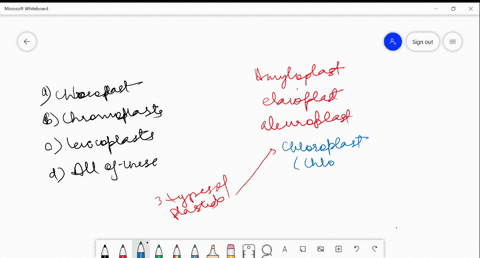 Microsoft Whiteboard
Sign out
a) Chloroplast
b) Chromoplasts
c) leucoplasts
d) All of these
Amyloplast
elaioplast
aleuroplast
chloroplast
( chlo
3 types of
plastids